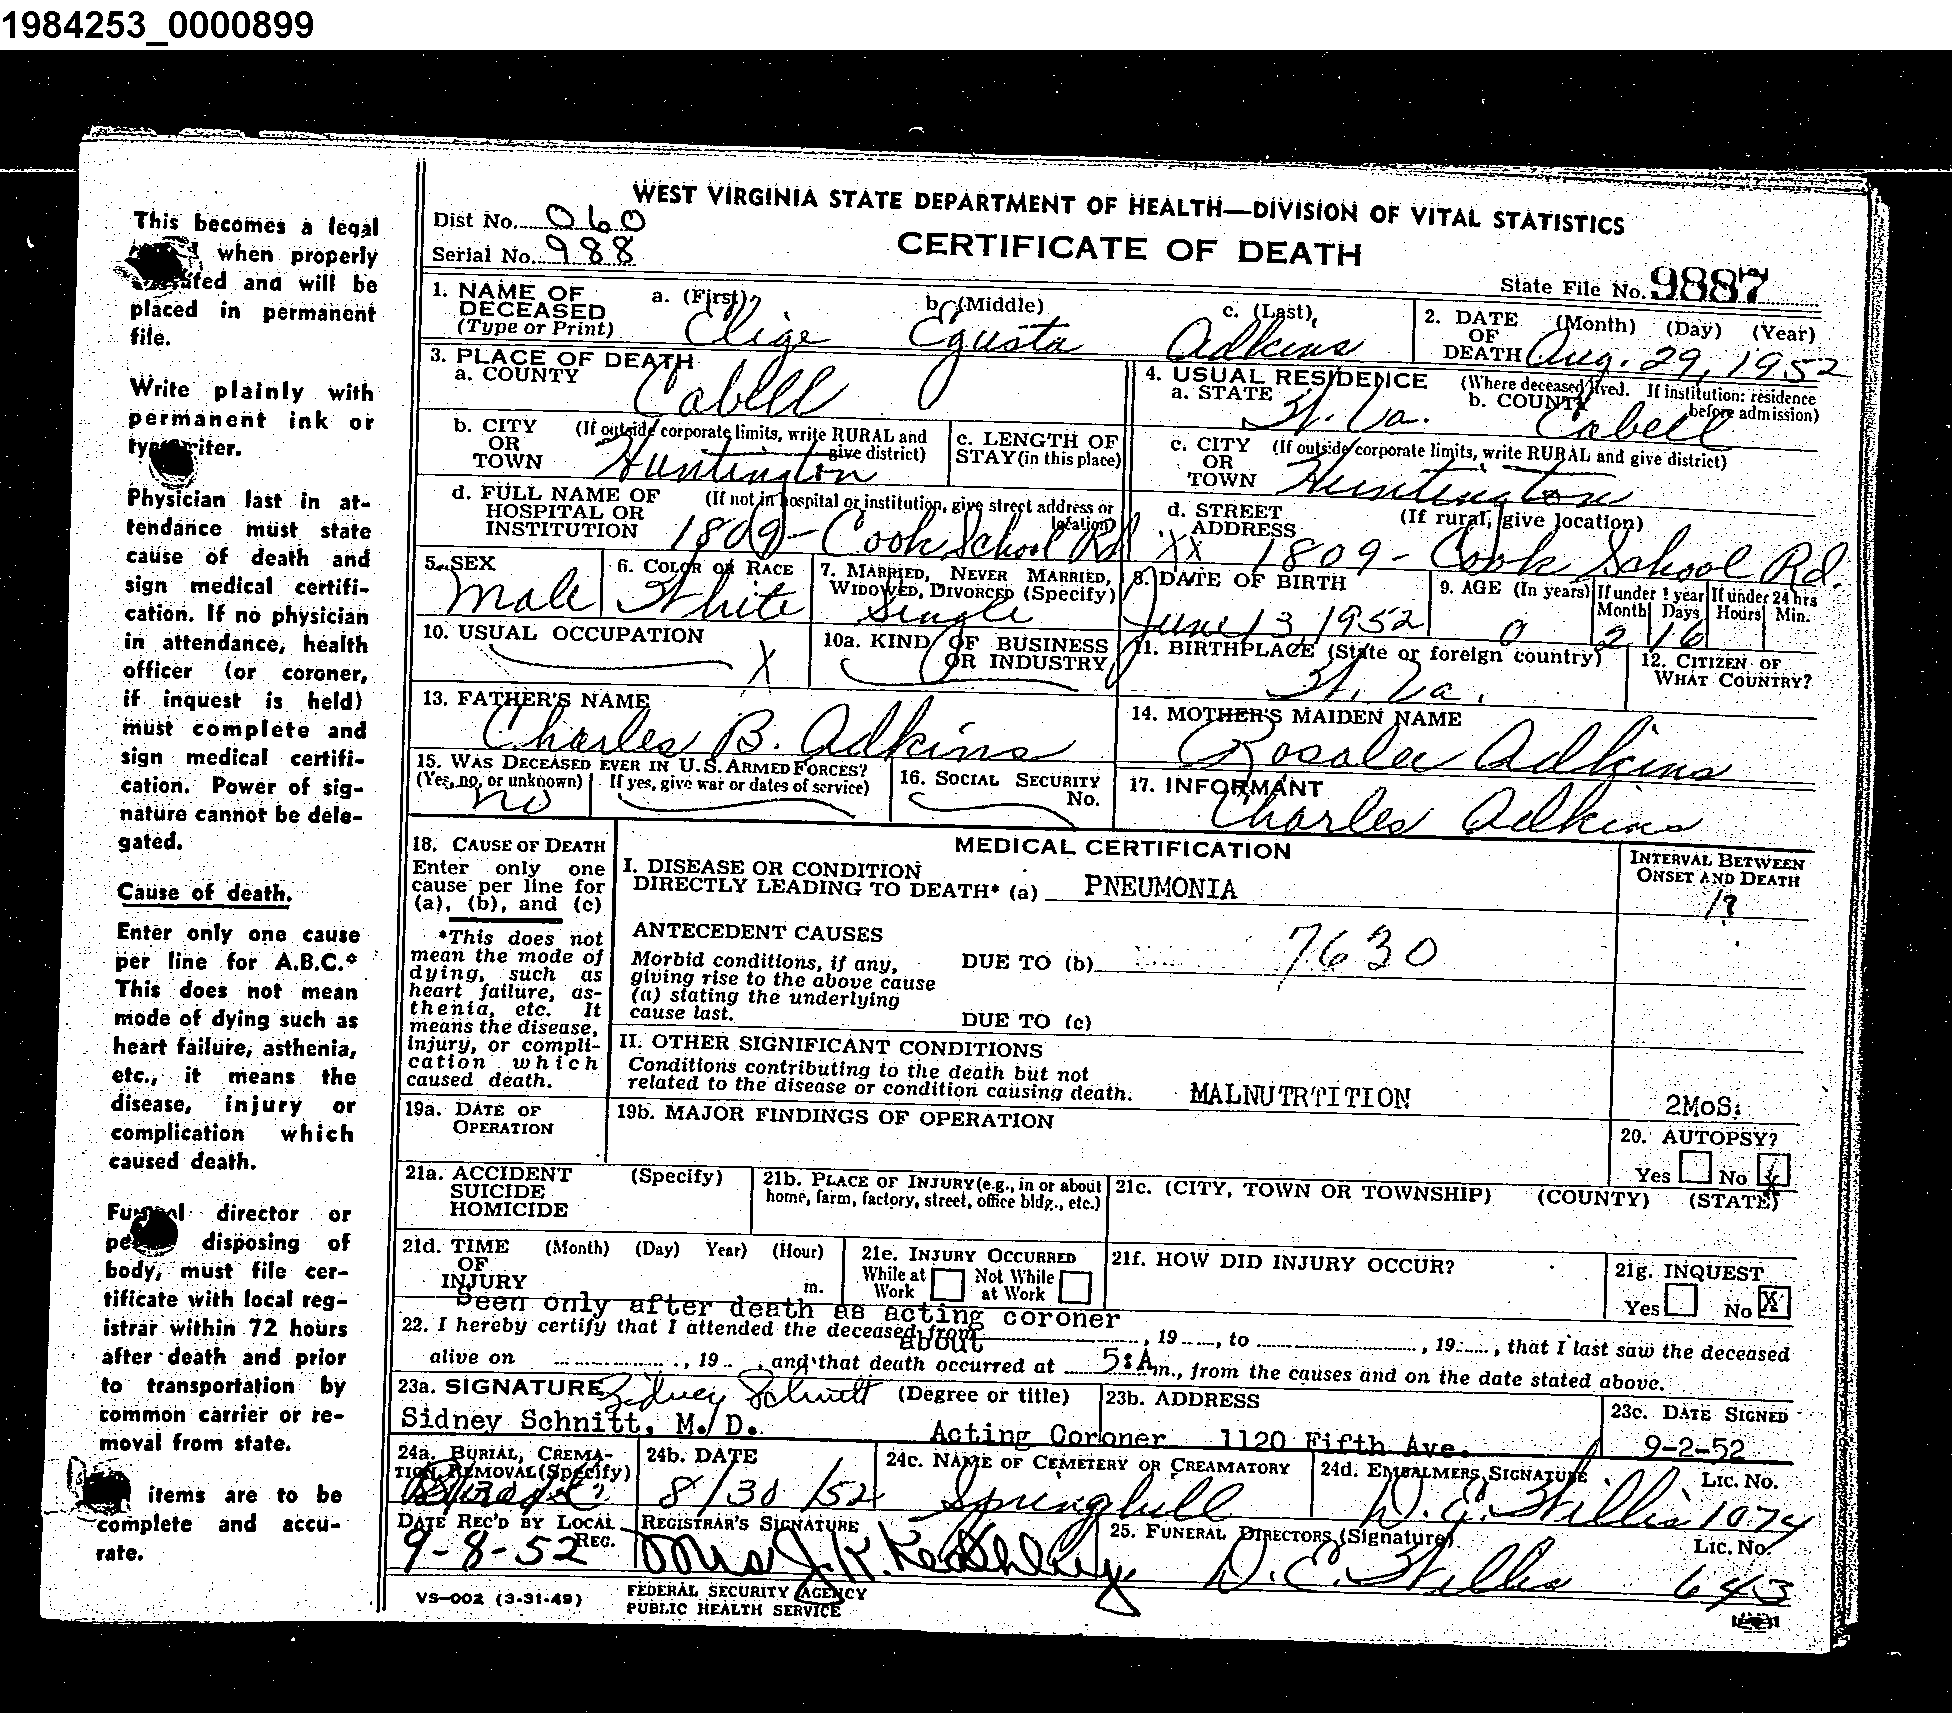 1984253_0000899
This becomes a legal
when properly
and will be
placed in permanent
file.
Write plainly with
permanent ink or
typewriter.
Physician last in at-
tendance must state
cause of death and
sign medical certifi-
cation. If no physician
in attendance, health
officer (or coroner,
if inquest is held)
must complete and
sign medical certifi-
cation. Power of sig-
nature cannot be dele-
gated.
Cause of death.
Enter only one cause
per line for A.B.C.*
This does not mean
mode of dying such as
heart failure, asthenia,
etc., it means the
disease, injury or
complication which
caused death.
Funeral director or
disposing of
body, must file cer-
tificate with local reg-
istrar within 72 hours
after death and prior
to transportation by
common carrier or re-
moval from state.
items are to be
complete and accu-
rate.
WEST VIRGINIA STATE DEPARTMENT OF HEALTH—DIVISION OF VITAL STATISTICS
Dist No. 060
CERTIFICATE OF DEATH
Serial No. 988
State File No. 9887
1. NAME OF DECEASED (Type or Print) a. (First) Elige b. (Middle) Egusta c. (Last) Adkins
2. DATE OF DEATH (Month) (Day) (Year) Aug. 29, 1952
3. PLACE OF DEATH
a. COUNTY Cabell
4. USUAL RESIDENCE (Where deceased lived. If institution: residence before admission)
a. STATE W. Va. b. COUNTY Cabell
b. CITY OR TOWN (If outside corporate limits, write RURAL and give district) Huntington
c. LENGTH OF STAY (in this place)
c. CITY OR TOWN (If outside corporate limits, write RURAL and give district) Huntington
d. FULL NAME OF HOSPITAL OR INSTITUTION (If not in hospital or institution, give street address or location) 1809 - Cook School Rd
d. STREET ADDRESS (If rural, give location) XX 1809 - Cook School Rd.
5. SEX Male
6. COLOR OR RACE White
7. MARRIED, NEVER MARRIED, WIDOWED, DIVORCED (Specify) Single
8. DATE OF BIRTH June 13, 1952
9. AGE (In years) 0 If under 1 year Month 2 Days 16 If under 24 hrs Hours Min.
10. USUAL OCCUPATION X
10a. KIND OF BUSINESS OR INDUSTRY
11. BIRTHPLACE (State or foreign country) W. Va.
12. CITIZEN OF WHAT COUNTRY?
13. FATHER'S NAME Charles B. Adkins
14. MOTHER'S MAIDEN NAME Rosalee Adkins
15. WAS DECEASED EVER IN U.S. ARMED FORCES? (Yes, no, or unknown) no If yes, give war or dates of service)
16. SOCIAL SECURITY No.
17. INFORMANT Charles Adkins
18. CAUSE OF DEATH
Enter only one
cause per line for
(a), (b), and (c)
*This does not
mean the mode of
dying, such as
heart failure, as-
thenia, etc. It
means the disease,
injury, or compli-
cation which
caused death.
MEDICAL CERTIFICATION
INTERVAL BETWEEN ONSET AND DEATH
I. DISEASE OR CONDITION
DIRECTLY LEADING TO DEATH* (a) PNEUMONIA
ANTECEDENT CAUSES
Morbid conditions, if any,
giving rise to the above cause
(a) stating the underlying
cause last.
DUE TO (b) 7630
DUE TO (c)
II. OTHER SIGNIFICANT CONDITIONS
Conditions contributing to the death but not
related to the disease or condition causing death. MALNUTRTITION 2MoS.
19a. DATE OF OPERATION
19b. MAJOR FINDINGS OF OPERATION
20. AUTOPSY?
Yes No X
21a. ACCIDENT SUICIDE HOMICIDE (Specify)
21b. PLACE OF INJURY (e.g., in or about home, farm, factory, street, office bldg., etc.)
21c. (CITY, TOWN OR TOWNSHIP) (COUNTY) (STATE)
21d. TIME OF INJURY (Month) (Day) Year) (Hour) m.
21e. INJURY OCCURRED While at Work Not While at Work
21f. HOW DID INJURY OCCUR?
21g. INQUEST
Yes No X
Seen only after death as acting coroner
22. I hereby certify that I attended the deceased from , 19 , to , 19 , that I last saw the deceased
about
alive on , 19 , and that death occurred at 5:A m., from the causes and on the date stated above.
23a. SIGNATURE Sidney Schnitt (Degree or title)
Sidney Schnitt, M. D. Acting Coroner
23b. ADDRESS
1120 Fifth Ave.
23c. DATE SIGNED
9-2-52
24a. BURIAL, CREMATION, REMOVAL (Specify)
24b. DATE 8/30/52
24c. NAME OF CEMETERY OR CREAMATORY Springhill
24d. EMBALMERS SIGNATURE D. E. Willis Lic. No. 1074
DATE REC'D BY LOCAL REG. 9-8-52
REGISTRAR'S SIGNATURE Mrs J. K.
25. FUNERAL DIRECTORS (Signature) D. E. Willis Lic. No. 643
VS-002 (3-31-49)
FEDERAL SECURITY AGENCY
PUBLIC HEALTH SERVICE